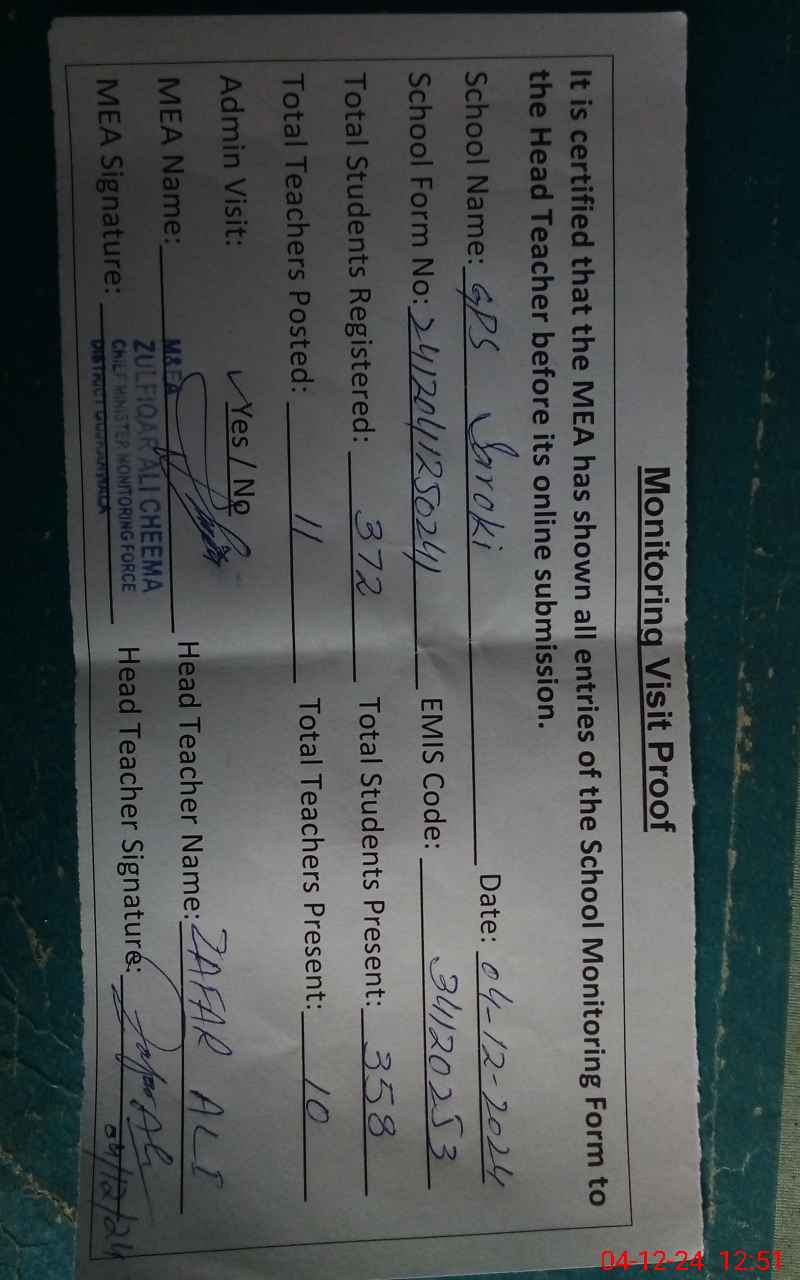 Monitoring Visit Proof
It is certified that the MEA has shown all entries of the School Monitoring Form to
the Head Teacher before its online submission.
School Name: GPS Saroki Date: 04-12-2024
School Form No: 2412041250241 EMIS Code: 34120253
Total Students Registered: 372 Total Students Present: 358
Total Teachers Posted: 11 Total Teachers Present: 10
Admin Visit: ✓Yes / No
MEA Name: Head Teacher Name: ZAFAR ALI
MEA Signature: Head Teacher Signature: Zafar Ali
04/12/24
M&EA
ZULFIQAR ALI CHEEMA
CHIEF MINISTER MONITORING FORCE
DISTRICT GUJRANWALA
04-12-24 12:51